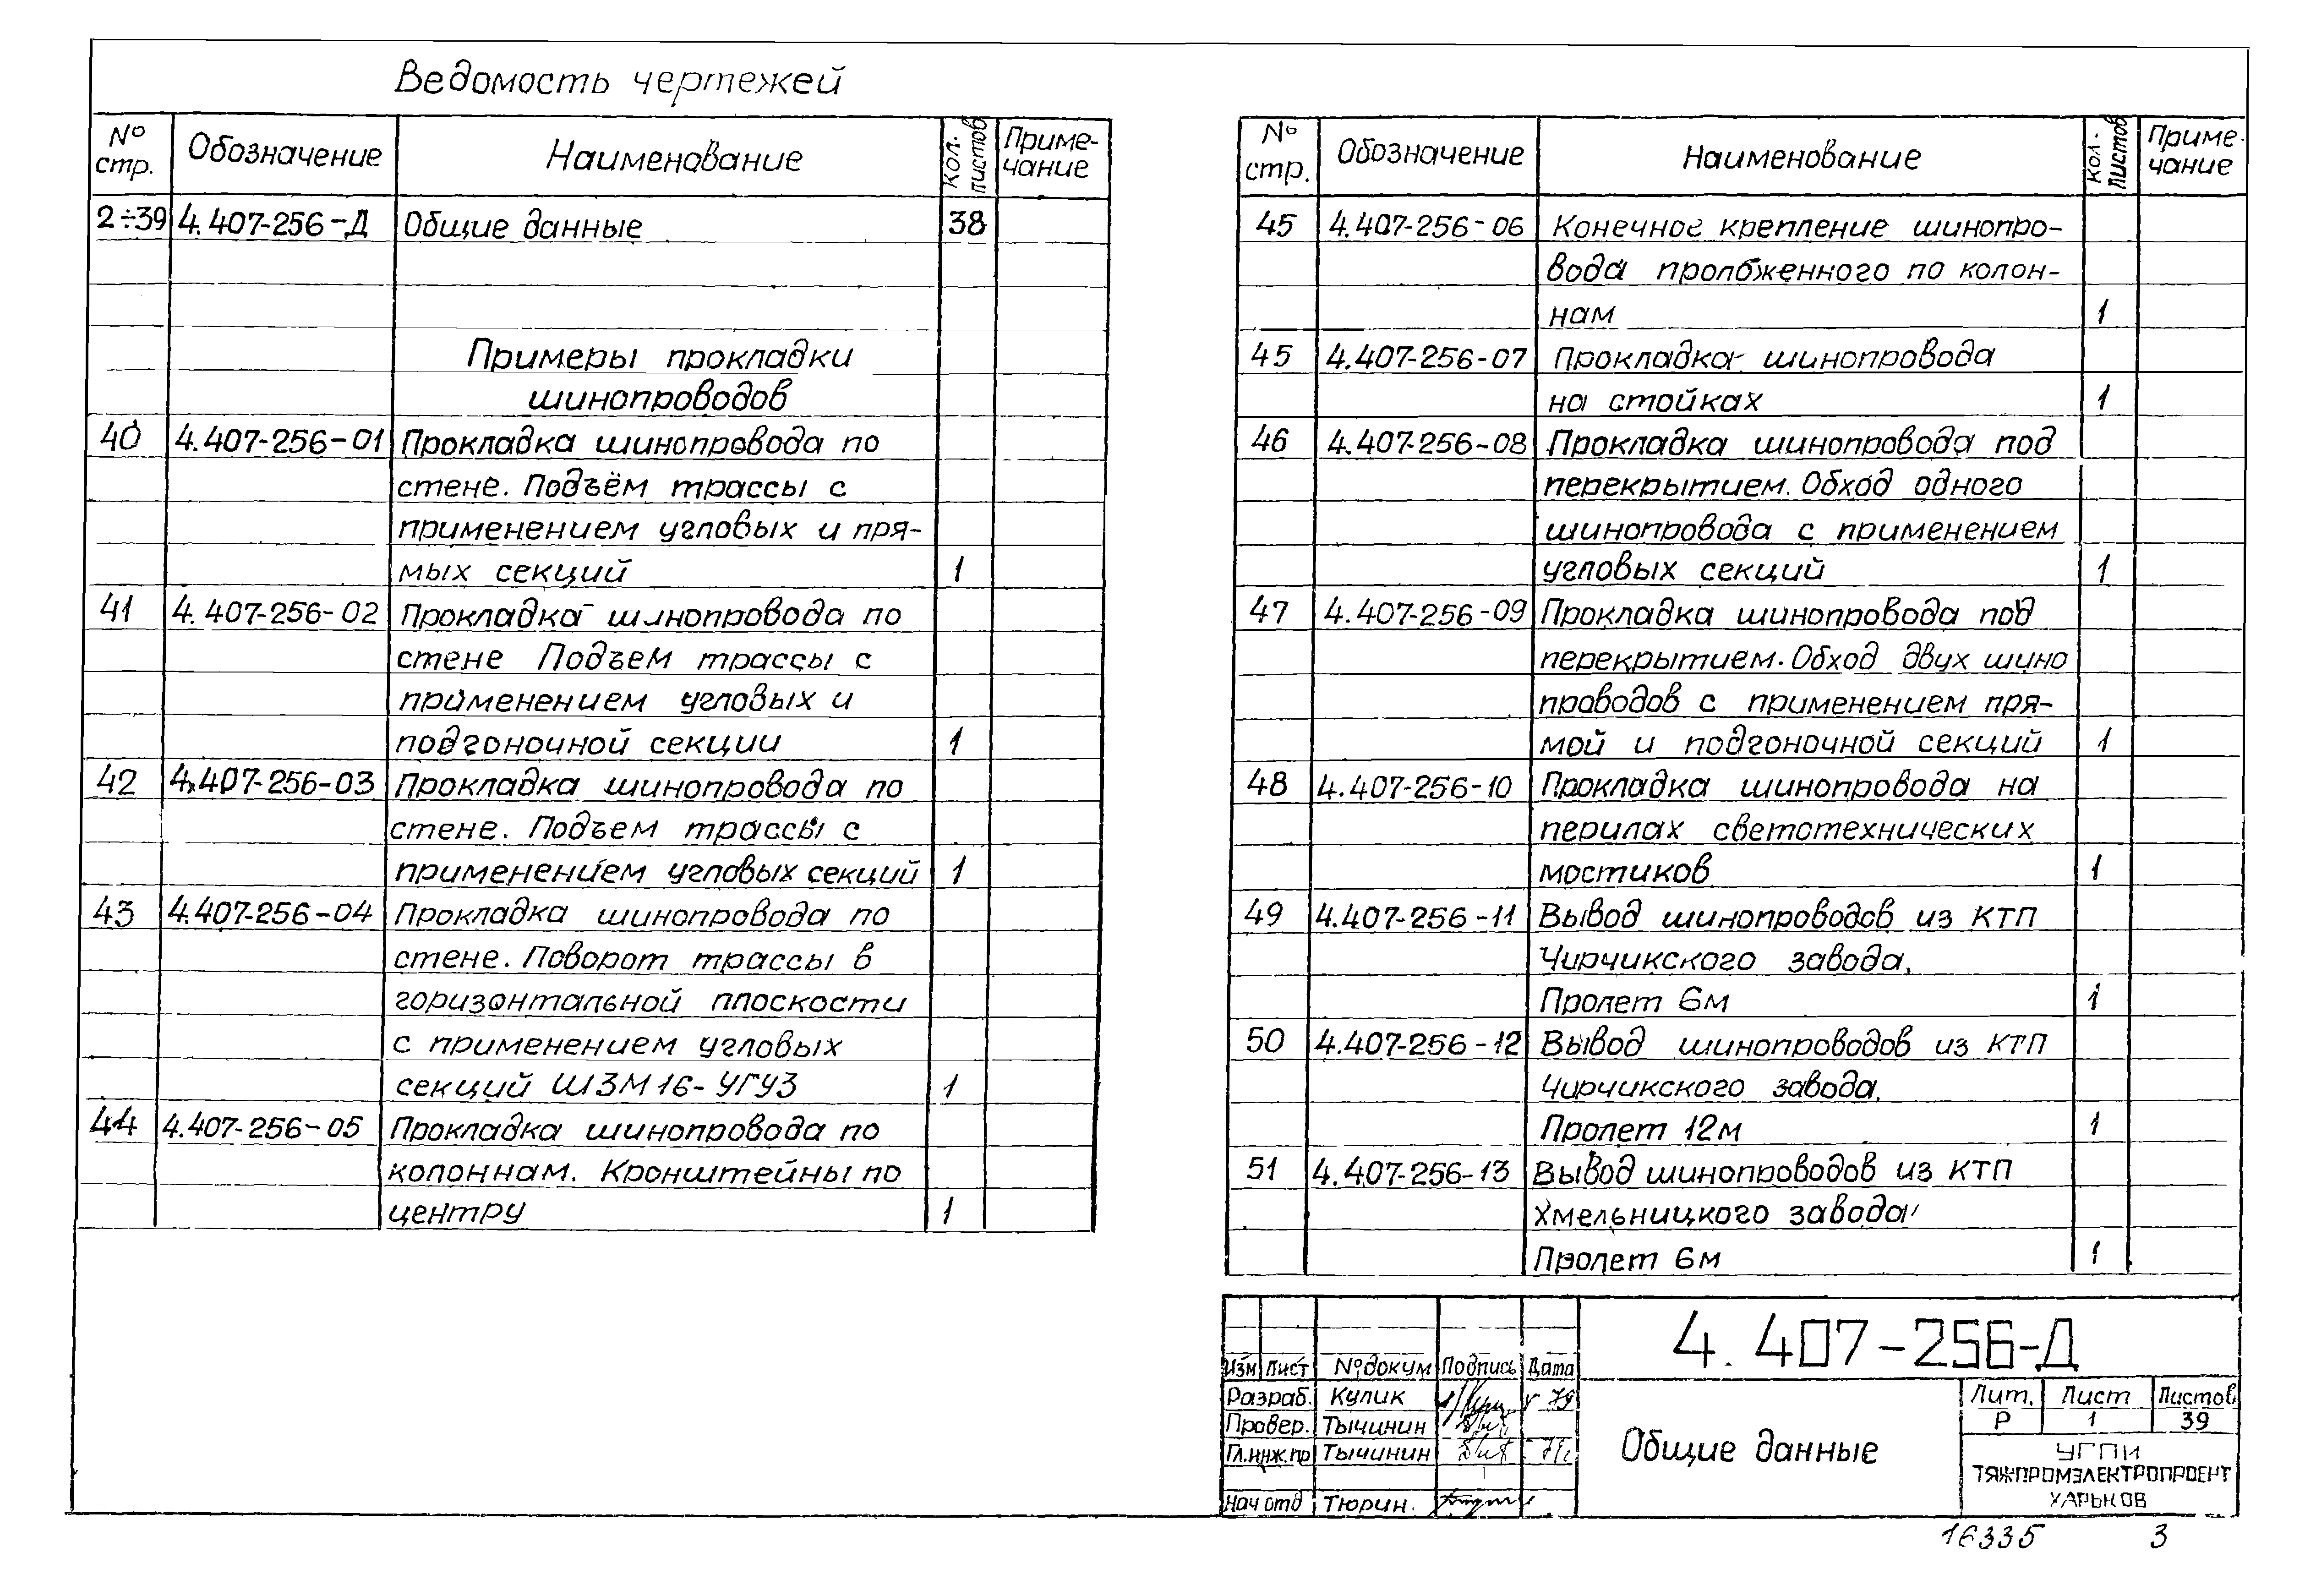 Ведомость чертежей
№ стр. Обозначение Наименование Кол. листов Примечание
2÷39 4.407-256-Д Общие данные 38
Примеры прокладки
шинопроводов
40 4.407-256-01 Прокладка шинопровода по
стене. Подъём трассы с
применением угловых и пря-
мых секций 1
41 4.407-256-02 Прокладка шинопровода по
стене Подъем трассы с
применением угловых и
подгоночной секции 1
42 4.407-256-03 Прокладка шинопровода по
стене. Подъем трассы с
применением угловых секций 1
43 4.407-256-04 Прокладка шинопровода по
стене. Поворот трассы в
горизонтальной плоскости
с применением угловых
секций ШЗМ16-УГУЗ 1
44 4.407-256-05 Прокладка шинопровода по
колоннам. Кронштейны по
центру 1
№ стр. Обозначение Наименование Кол. листов Примечание
45 4.407-256-06 Конечное крепление шинопро-
вода проложенного по колон-
нам 1
45 4.407-256-07 Прокладка шинопровода
на стойках 1
46 4.407-256-08 Прокладка шинопровода под
перекрытием. Обход одного
шинопровода с применением
угловых секций 1
47 4.407-256-09 Прокладка шинопровода под
перекрытием. Обход двух шино
проводов с применением пря-
мой и подгоночной секций 1
48 4.407-256-10 Прокладка шинопровода на
перилах светотехнических
мостиков 1
49 4.407-256-11 Вывод шинопроводов из КТП
Чирчикского завода.
Пролет 6м 1
50 4.407-256-12 Вывод шинопроводов из КТП
Чирчикского завода.
Пролет 12м 1
51 4.407-256-13 Вывод шинопроводов из КТП
Хмельницкого завода
Пролет 6м 1
4.407-256-Д
Изм Лист №докум Подпись Дата
Разраб. Кулик
Провер. Тычинин
Гл.инж.пр Тычинин
Нач отд Тюрин.
Общие данные
Лит. Лист Листов
Р 1 39
УГПИ
ТЯЖПРОМЭЛЕКТРОПРОЕКТ
ХАРЬКОВ
16335 3